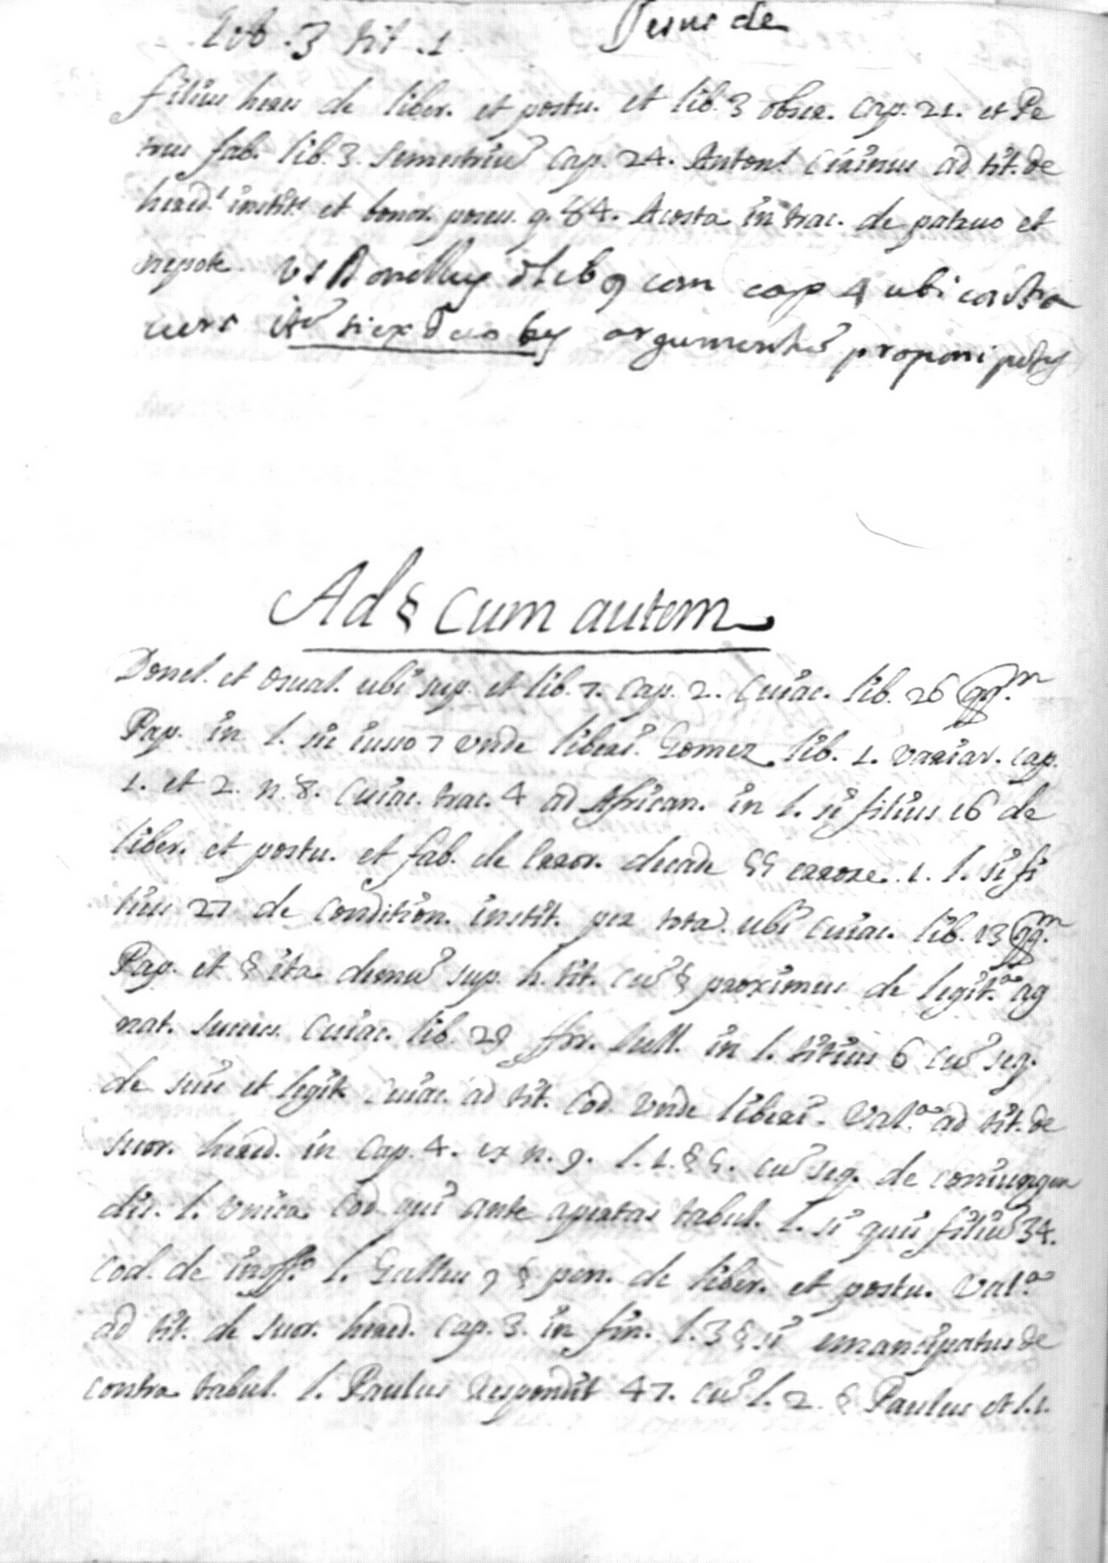 Lib. 3 tit. 1.
filius heres de liber. et postu. et lib. 3 obser. cap. 21. et Pe
trus fab. lib. 3. semestriũ cap. 24. Anton. ad tit. de
hered. instit. et bonor. posses. q. 84. Acosta in trac. de patruo et
nepote vs Donellus lib 9 com cap 4 ubi contra
vers argumentũ proponi
Ad § Cum autem
Donel. et Osual. ubi sup. et lib. 7. cap. 2. Cuiac. lib. 26 qq.
Pap. in l. si iusso 7 unde liberi. Gomez lib. 1. variar. cap.
1. et 2. n. 8. Cuiac. trac. 4 ad African. in l. si filius 16 de
liber. et postu. et fab. de error. decade 55 errore. 1. l. si fi
lius 27 de condition. instit. per totã. ubi Cuiac. lib. 13 qq.
Pap. et § ita demũ sup. h. tit. cũ § proximus de legit. ag
nat. succes. Cuiac. lib. 29 in l. titius 6 cũ seq.
de suis et legit. Cuiac. ad tit. Cod. unde liberi. Val.ᵒ ad tit. de
suor. hered. in cap. 4. ex n. 9. l. 1. § 5. cũ seq. de coniungen
dis. l. unica Cod. qui ante apertas tabul. l. si quis filiũ 34.
Cod. de inoff.ᵒ l. Gallus 9 § pen. de liber. et postu. Val.ᵒ
ad tit. de suor. hered. cap. 3. in fin. l. 3 § si emancipatus de
contra tabul. l. Paulus respondit 47. cũ l. 2. § Paulus et l. 1.